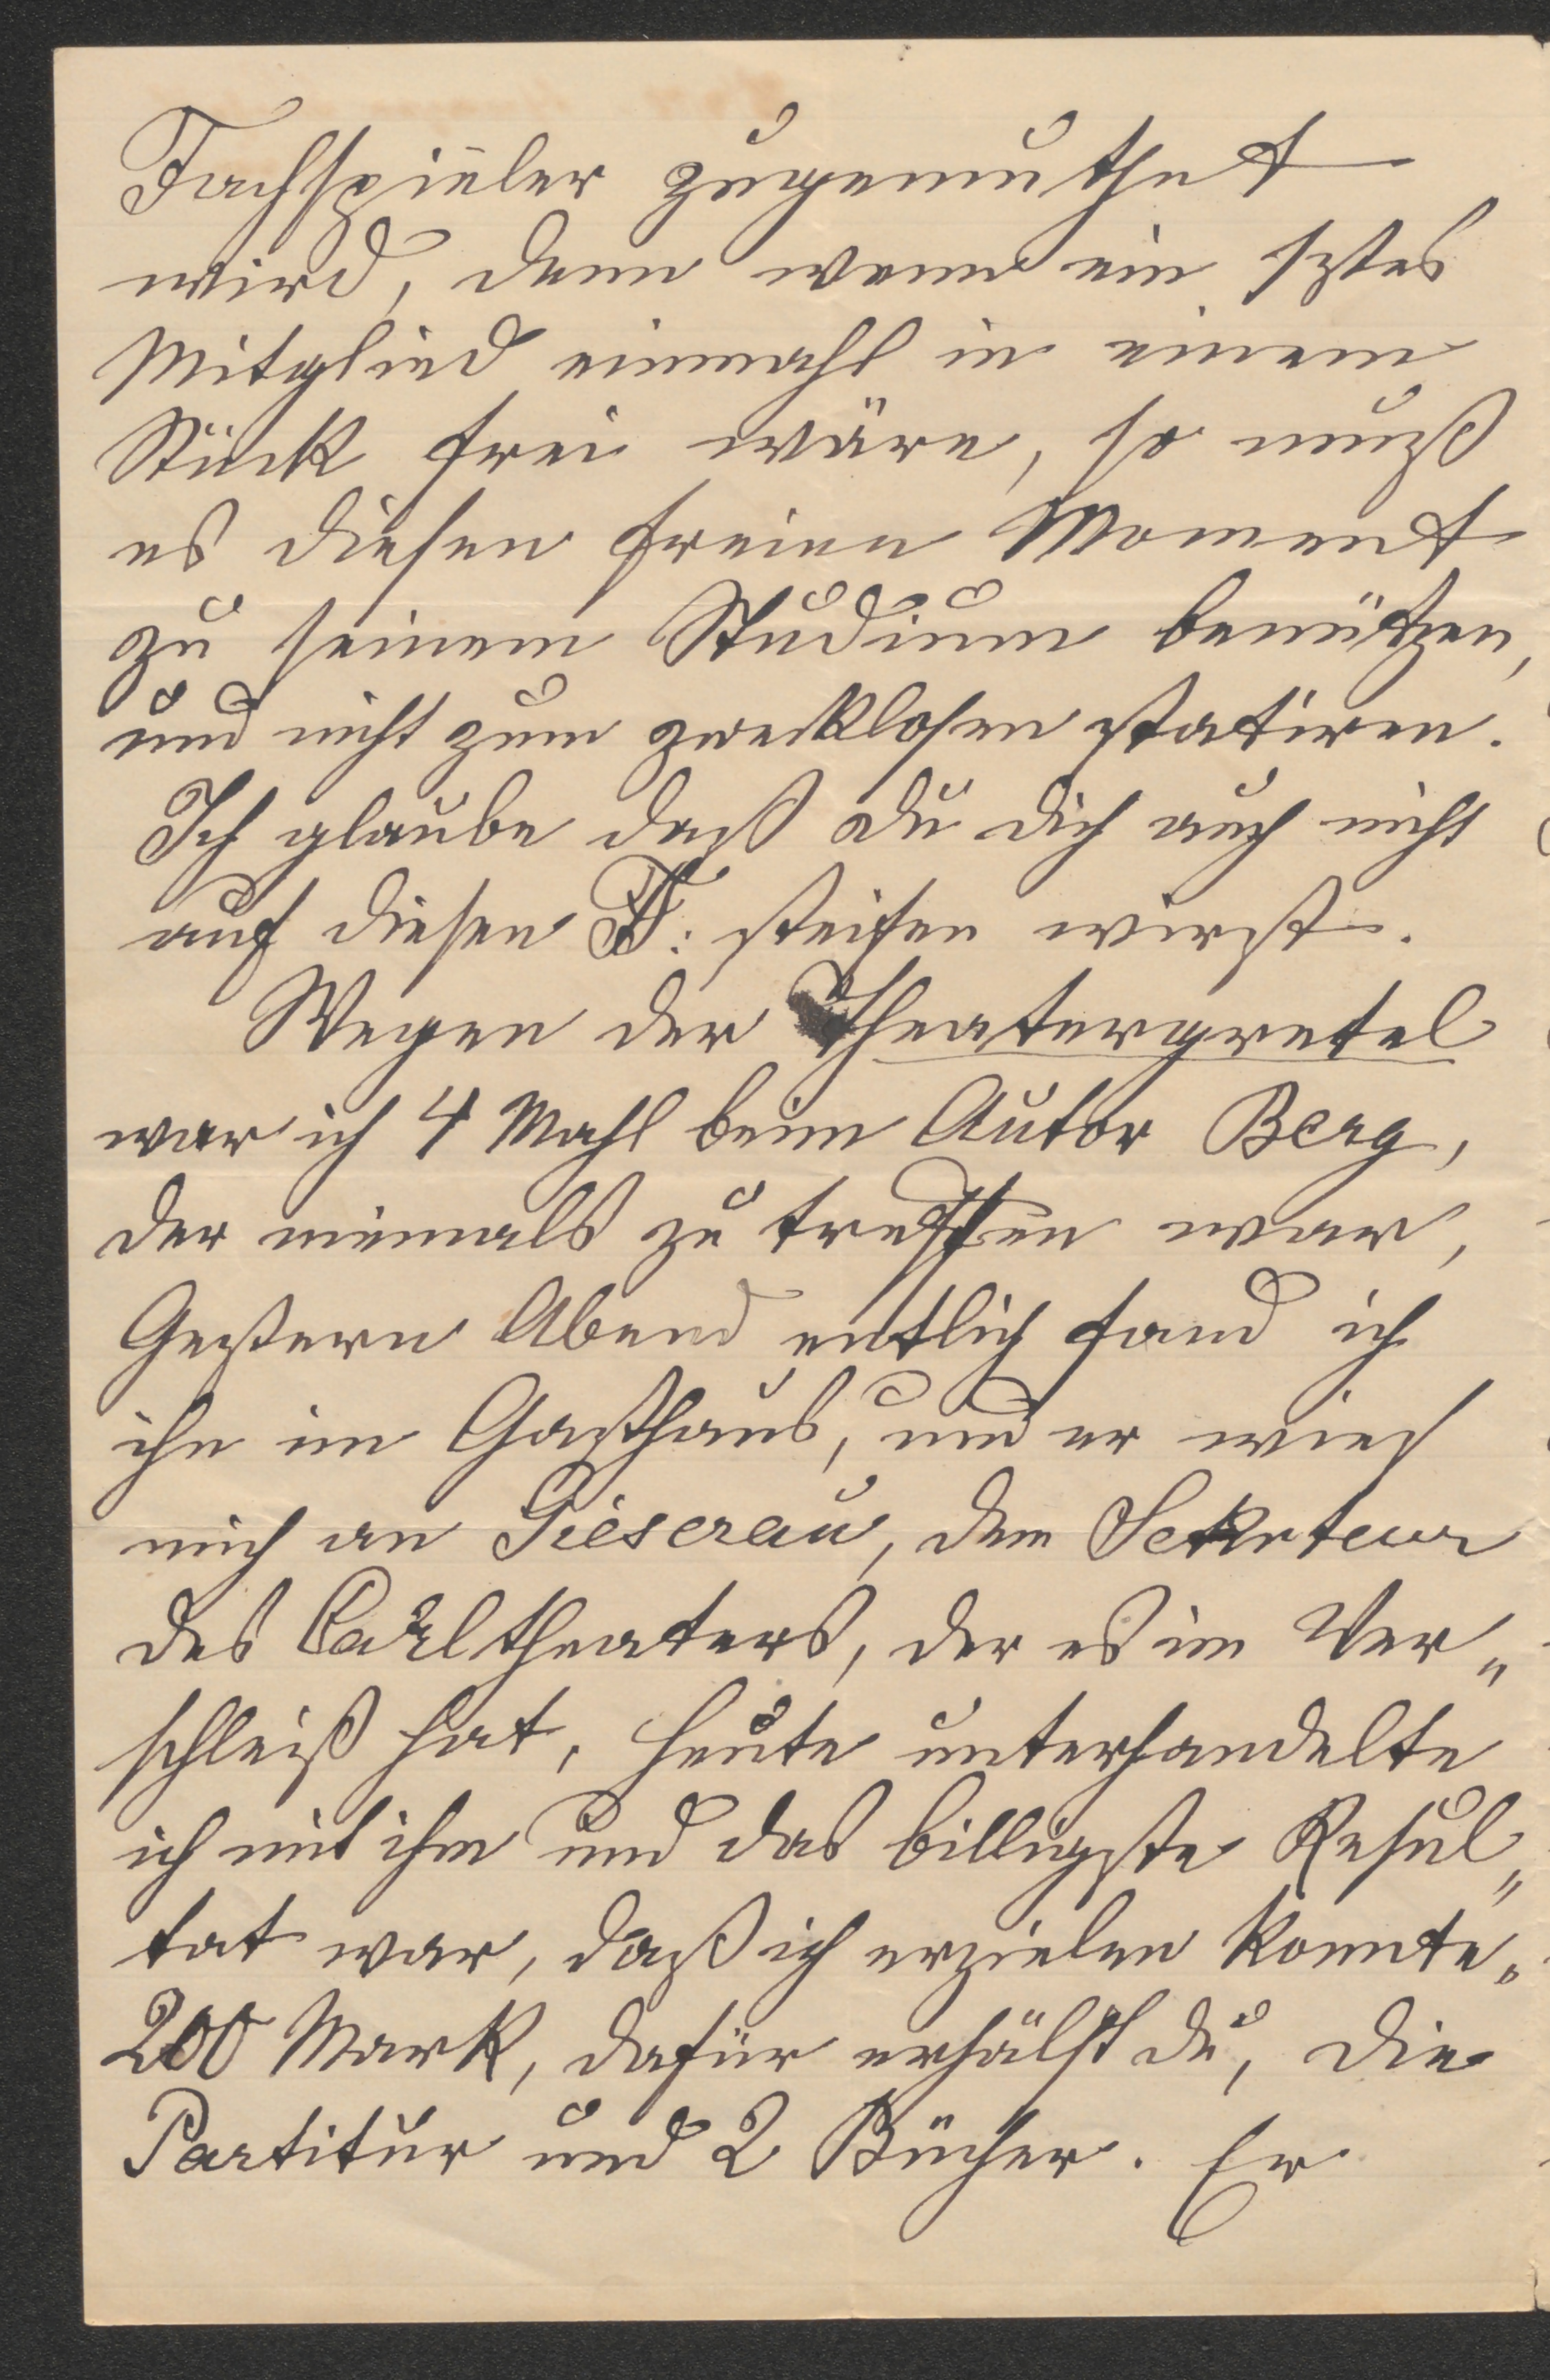 Fachspieler zugemuthet
wird, denn wenn ein 1stes
Mitglied einmahl in einem
Stück frei wäre, so muß
es diesen freien Moment
zu seinem Studium benützen,
und nicht zum zwecklosen statiren.
Ich glaube daß du dich auch nicht
auf diesen F: steifen wirst.
Wegen der Theatergretel
war ich 4 Mahl beim Autor Berg,
der niemals zu treffen war,
Gestern Abend entlich fand ich
ihn im Gasthaus, und er wies
mich an Gieserau, dem
des Carltheaters, der es im Ver„
schleiß hat, heute unterhandelte
ich mit ihm und das billigste Resul„
tat war, daß ich erzielen konnte„
200 Mark, dafür erhälst du, die
Partitur und 2 Bücher. Er